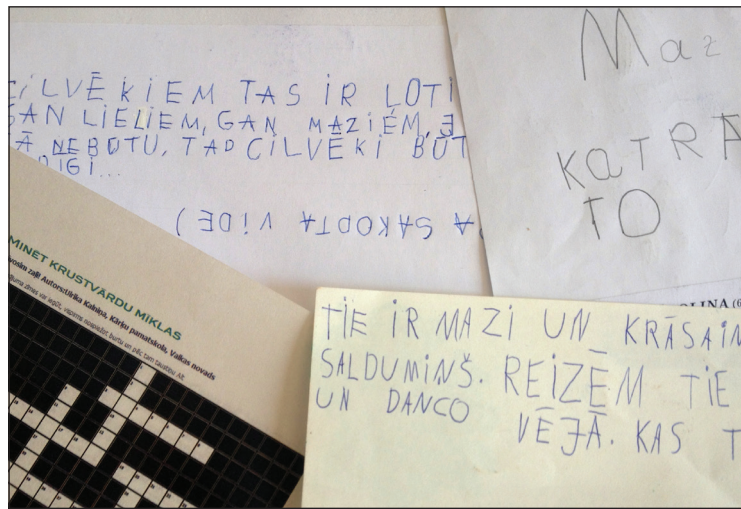 CILVĒKIEM TAS IR ĻOTI
GAN LIELIEM, GAN MAZIEM, J
Ā NEBŪTU, TAD CILVĒKI BŪT
DĪGI...
A SAKOPTA VIDE)
Maz
KATRĀ
TO
MINET KRUSTVĀRDU MIKLAS
zaļi! Autors: Ulrika Kalniņa, Kārķu pamatskola, Valkas novads
LINA (6
TIE IR MAZI UN KRĀSAIN
SALDUMIŅŠ. REIZĒM TIE
UN DANCO
VĒJĀ. KAS T